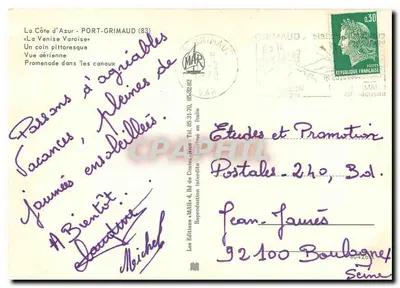 La Côte d'Azur - PORT-GRIMAUD (83)
«La Venise Varoise»
Un coin pittoresque
Vue aérienne
Promenade dans les canaux
Passons d'agréables
Vacances, pleines de
journées ensoleillées.
A Bientôt
Michel
MAR
Les Editions «MAR» 4,
Reproduction interdite
GRIMAUD
VAR
0,30
POSTES
REPUBLIQUE FRANÇAISE
Etudes et Promotion
Postales - 240, Bd.
Jean-Jaurès
92100 Boulogne
Seine
CPAPHIL